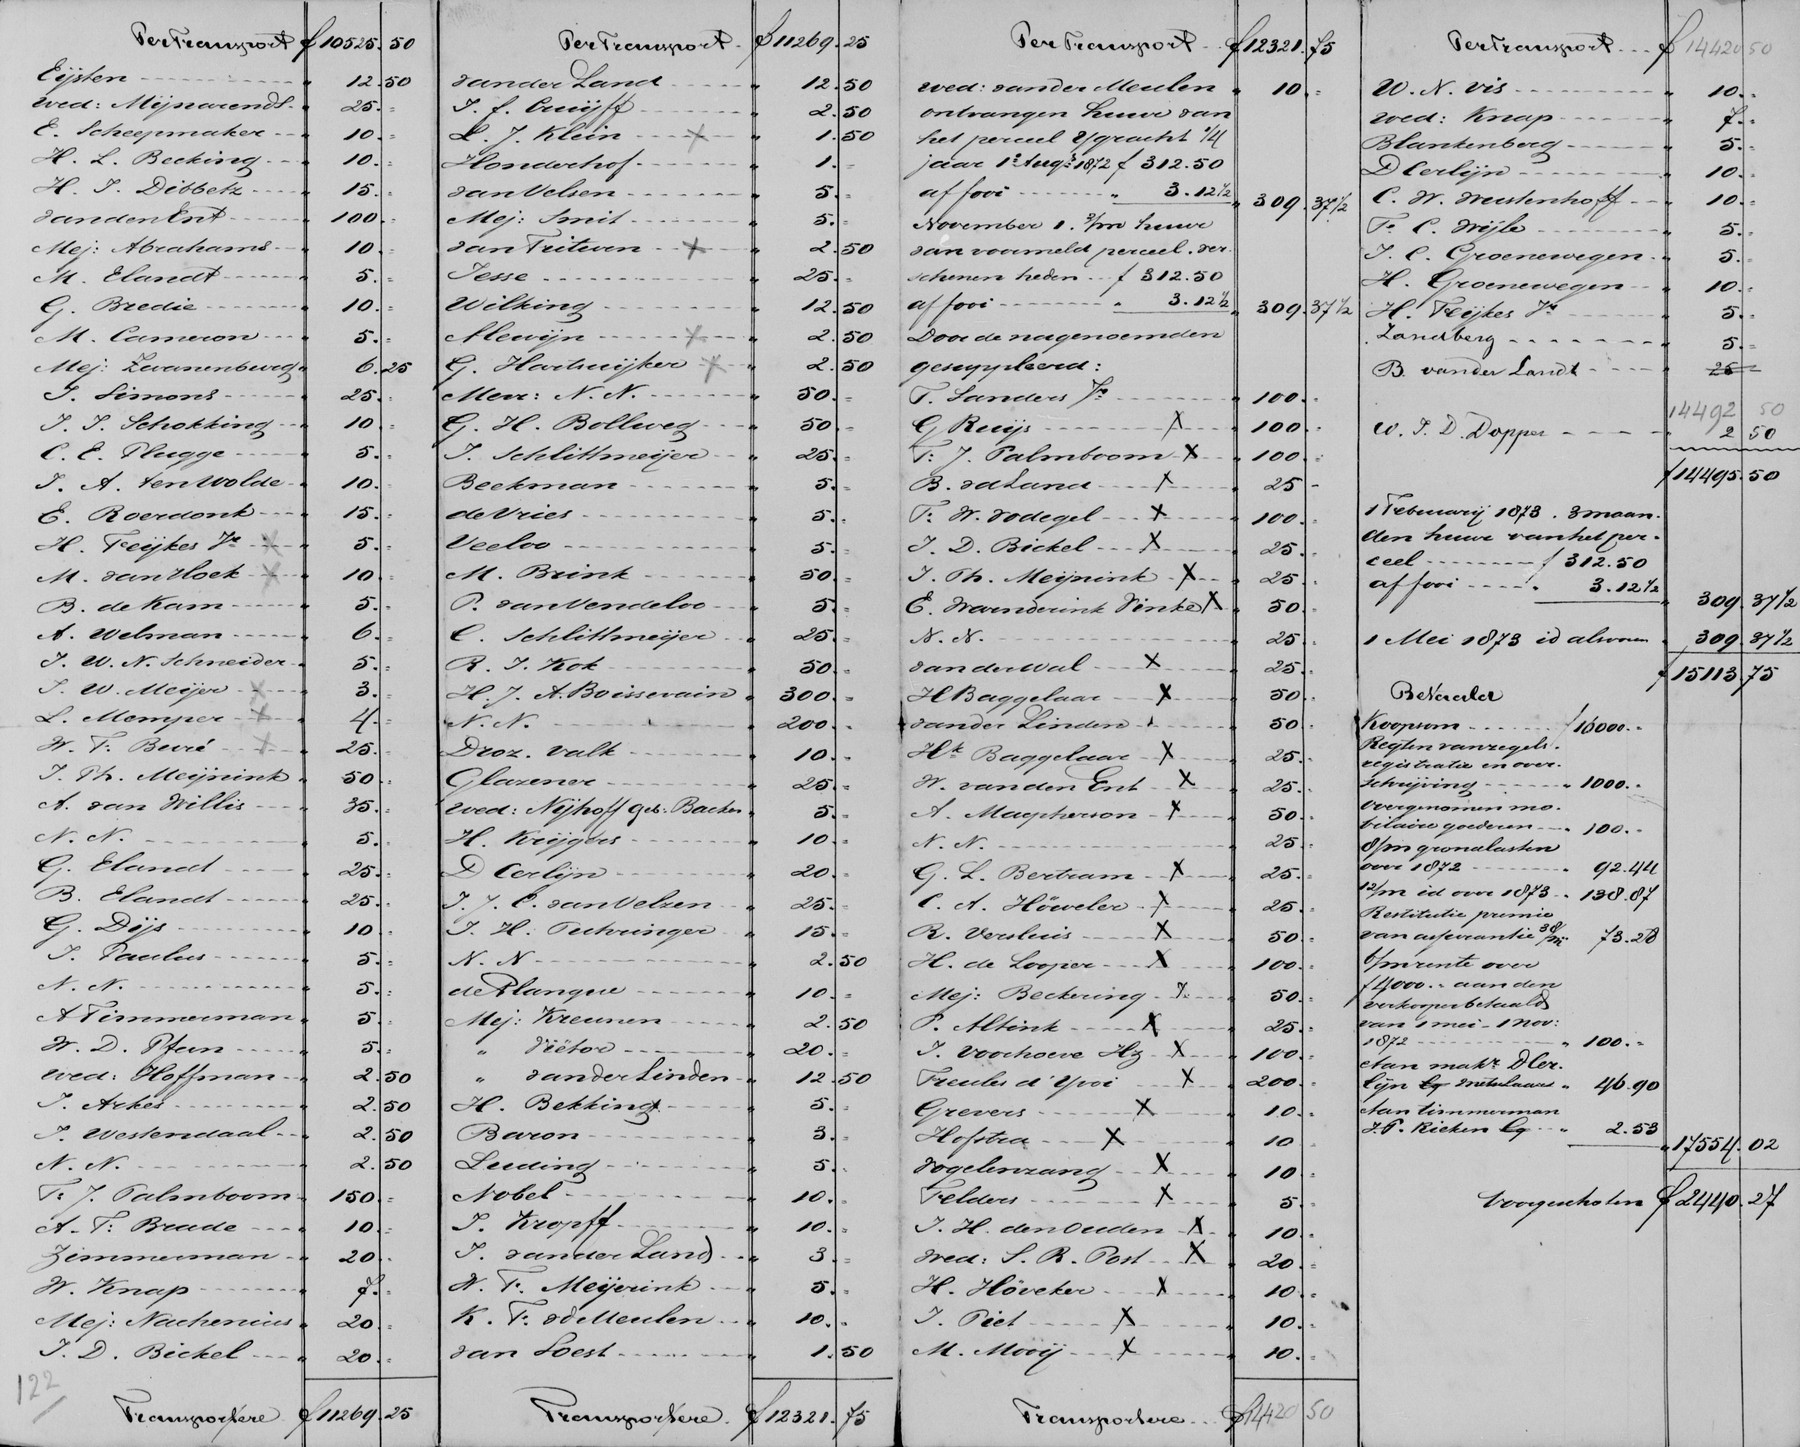 Per Transport f 10525.50
Eijsten " 12.50
Wed: Mijnarends " 25.=
E. Scheepmaker " 10.=
H. L. Becking " 10.=
H. J. Dibbetz " 15.=
van den Ent " 100.=
Mej: Abrahams " 10.=
M. Elandt " 5.=
G. Bredie " 10.=
M. Cameron " 5.=
Mej: Zwanenburg " 6.25
J. Simons " 25.=
J. J. Schokking " 10.=
C. E. Plugge " 5.=
J. A. ten Wolde " 10.=
E. Roerdonk " 15.=
H. Feijkes Jr X " 5.=
M. van Hoek X " 10.=
B. de Kam " 5.=
A. Welman " 6.=
J. W. N. Schneider " 5.=
J. W. Meijer X " 3.=
L. Memper X " 4.=
W. F. Buré X " 25.=
J. Ph. Meijnink " 50.=
A. van Willis " 35.=
N. N. " 5.=
G. Elandt " 25.=
B. Elandt " 25.=
G. Dijs " 10.=
J. Paulus " 5.=
N. N. " 5.=
A Timmerman " 5.=
W. D. Pfan " 5.=
Wed: Hoffman " 2.50
J. Arkes " 2.50
J. Westendaal " 2.50
N. N. " 2.50
F. J. Palmboom " 150.=
A. F. Brade " 10.=
Zimmerman " 20.=
W. Knap " 7.=
Mej: Nachenius " 20.=
J. D. Bickel " 20.=
122
Transportere f 11269.25
Per Transport f 11269.25
van der Land " 12.50
J. f. Cruijff " 2.50
L. J. Klein X " 1.50
Honderhof " 1.=
van Velsen " 5.=
Mej: Smit " 5.=
van Triteven X " 2.50
Jesse " 25.=
Wilking " 12.50
Alewijn X " 2.50
G. Hartwijker X " 2.50
Mevr: N. N. " 50.=
G. H. Bollweg " 50.=
J. Schlittmeijer " 25.=
Beekman " 5.=
de Vries " 5.=
Veeloo " 5.=
M. Brink " 50.=
P. van Vendeloo " 5.=
C. Schlittmeijer " 25.=
R. J. Kok " 50.=
H. J. A. Boissevain " 300.=
N. N. " 200.=
Droz. Valk " 10.=
Glazener " 25.=
Wed: Nijhoff geb: Backer " 5.=
H. Krijgers " 10.=
D Cerlijn " 20.=
J. J. C. van Velzen " 25.=
J. H. Tuhringer " 15.=
N. N " 2.50
de Plangue " 10.=
Mej: Kreunen " 2.50
" Viëtor " 20.=
" van der Linden " 12.50
H. Bekking " 5.=
Baron " 3.=
Leuding " 5.=
Nobel " 10.=
J. Kropff " 10.=
J. van der Land " 3.=
W. F. Meijerink " 5.=
K. F. vd Meulen " 10.=
van Soest " 1.50
Transportere f 12321.75
Per Transport f 12321.75
Wed: van der Meulen " 10.=
ontvangen huur van
het perceel Ygracht 1/4
jaar 1e Augs 1872 f 312.50
af fooi " 3.12½ " 309.37½
November 1. 3/m huur
van voormeld perceel. ver
schenen heden f 312.50
af fooi " 3.12½ " 309.37½
Door de nagenoemden
gesuppleerd:
T. Sanders Jr " 100.=
G Ruijs X " 100.=
F. J. Palmboom X " 100.=
B. vd Land X " 25 -
F. W. Vodegel X " 100.=
J. D. Bickel X " 25.=
J. Ph. Meijnink X " 25.=
E. Warnderink Vinke X " 50.=
N. N. " 25.=
van der Wal X " 25.=
H Baggelaar X " 50.=
van der Linden " 50.=
Hk Baggelaar X " 25.=
W. van den Ent X " 25.=
A. Macpherson X " 50.=
N. N. " 25.=
G. L. Bertram X " 25.=
C. A. Höweler X " 25.=
R. Versluis X " 50.=
H. de Looper X " 100.=
Mej: Beckering X " 50.=
P. Altink X " 25.=
J. Voorhoeve Hz X " 100.=
Freules d'Yvoi X " 200.=
Grevers X " 10.=
Hofstra X " 10
Vogelenzang X " 10.=
Felders X " 5.=
J. H. den Ouden X " 10.=
Wed: S. R. Post X " 20.=
H. Höveker X " 10.=
J. Piet X " 10.=
M. Mooij X " 10.=
Transportere f 14420 50
Per Transport f 14420 50
W. N. Vis " 10.=
Wed: Knap " 7.=
Blankenberg " 5.=
D Cerlijn " 10.=
C. W. Westenhoff " 10.=
F. C. Wijle " 5.=
J. C. Groenewegen " 5.=
H. Groenewegen " 10.=
H. Feijkes Jr " 5.=
Zandberg " 5.=
B. van der Landt " 25=
14492 50
W. J. D. Dopper " 2 50
f 14495.50
1 Februarij 1873. 3 maan
den huur van het per
ceel f 312.50
af fooi " 3.12½ " 309.37½
1 Mei 1873 id alsvoren " 309.37½
f 15113.75
Betaald
Koopsom f 16000.=
Regten van zegels.
registratie en over.
schrijving " 1000.=
Overgenomen mo
bilaire goederen " 100.=
8/m grondlasten
over 1872 " 92.44
12/m id over 1873 " 138.87
Restitutie premie
van assurantie 38/m 73.28
6/m rente over
f 4000.= aan den
verkooper betaald
van 1 mei - 1 Nov:
1872 " 100.=
Aan makr D Cer.
lijn " 46.90
Aan timmerman
J. P. Rieken " 2.53
" 17554.02
Voorgeschoten f 2440.27